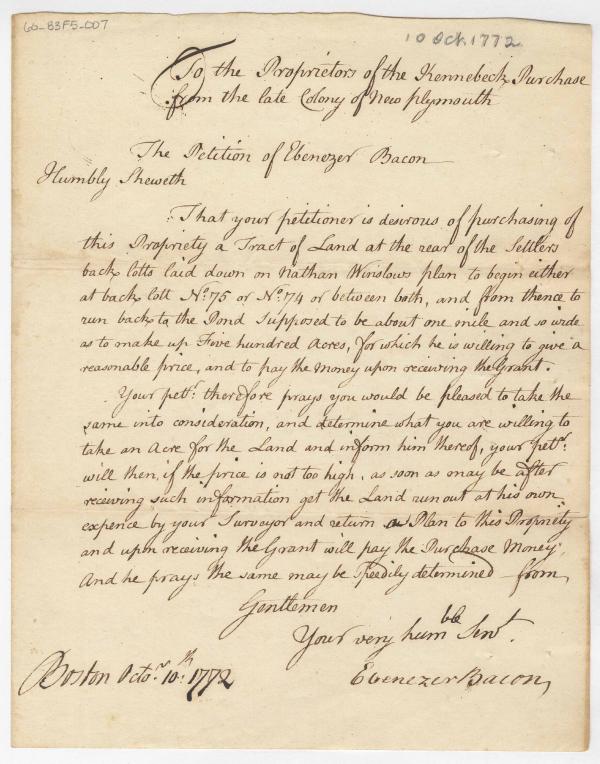 60-83F5-007
10 Oct. 1772
To the Proprietors of the Kennebeck Purchase
from the late Colony of New plymouth
The Petition of Ebenezer Bacon
Humbly Sheweth
That your petitioner is desirous of purchasing of
this Propriety a Tract of Land at the rear of the Settlers
back lotts laid down on Nathan Winslows plan to begin either
at back lott No. 75 or No. 74 or between both, and from thence to
run back to the Pond Supposed to be about one mile and so wide
as to make up Five hundred Acres, for which he is willing to give a
reasonable price, and to pay the Money upon receiving the Grant.
Your petr. therefore prays you would be pleased to take the
same into consideration, and determine what you are willing to
take an Acre for the Land and inform him thereof, your petr.
will then, if the price is not too high, as soon as may be after
receiving such information get the Land run out at his own
expence by your Surveyor and return a Plan to this Propriety
and upon receiving the Grant will pay the Purchase Money,
And he prays the same may be Speedily determined from
Gentlemen
Your very humble Servt.
Boston Octor. 10th. 1772
Ebenezer Bacon